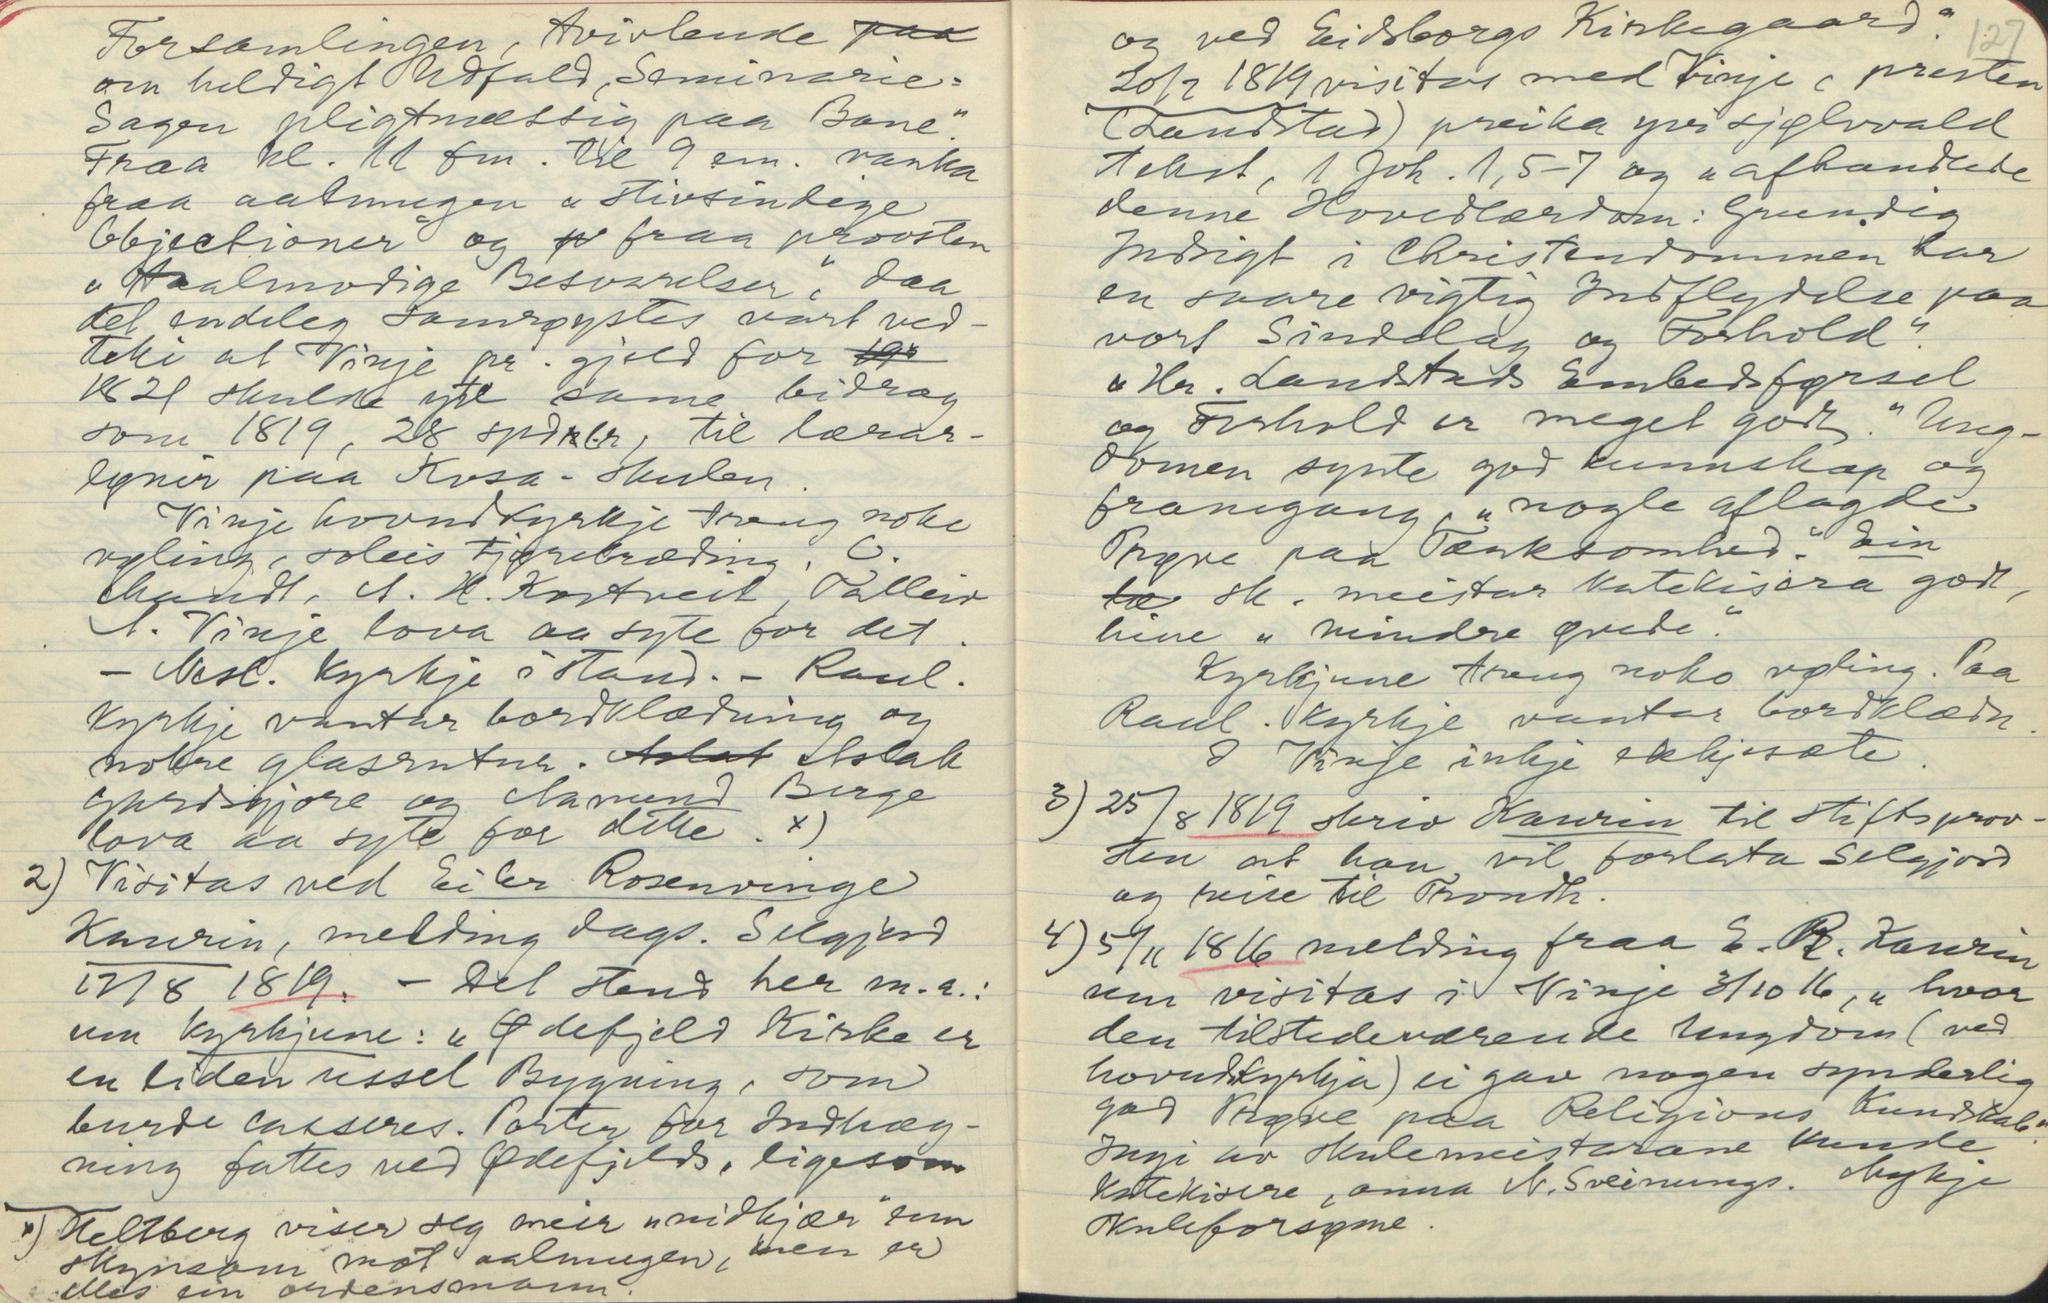 Forsamlingen, tvivlende paa
om heldigt Udfald, Seminarie-
Sagen pligtmæssig paa Bane“.
Fraa kl. 11 fm. til 9 em. vanka
fraa aalmugen „stivsindige
Objectioner“ og pr fraa proosten
„taalmodige Besvarelser“, daa
det endeleg samrøystes vart ved-
teki at Vinje pr. gjeld for
1821 skulde yte same bidrag
som 1819, 28 spdr, til lærar-
lønir paa Kvsa-skulen.
Vinje hovudkyrkje trong noko
vøling, soleis tjørebræding. C.
Mandt, A. H. Kostveit, Talleiv
A. Vinje lova aa syte for det.
– Nesl. kyrkje i stand. – Raul.
kyrkje vantar bordklædning og
nokre glasrutur. Aslak Aslak
Gardsgjore og Aamund Berge
lova aa syte for dette. x)
2) Visitas ved Eiler Rosenvinge
Kaurin, melding dags. Selgjord
17/8 1819. – Det stend her m.a.:
um kyrkjune: „Ødefjeld Kirke er
en liden ussel Bygning, som
burde casseres. Porter for Indhæg-
ning fattes ved Ødefjelds, ligesom
x) Heltberg viser seg meir „nidkjær“ enn
skynsam mot aalmugen, men er
elles ein ordensmann.
127
og ved Eidsborgs Kirkegaard“.
20/7 1819 visitas med Vinje, presten
(Landstad) preika yvi sjølvvald
tekst, 1 Joh. 1,5-7 og „afhandlede
denne Hovedlærdom: Grundig
Indsigt i Christendommen har
en saare vigtig Indflydelse paa
vort Sindelag og Forhold“.
„Hr. Landstads Embedsførsel
og Forhold er meget godt.“ Ung-
domen synte god kunnskap og
framgang, „nogle aflagde
Prøve paa Tænksomhed“. Ein
læ sk. meistar katekisera godt,
hine „mindre øvede“.
Kyrkjune trong noko vøling. Paa
Raul. kyrkje vantar bordklædn.
I Vinje inkje ekkjesæte.
3) 25/8 1819 skriv Kaurin til stiftsprov-
sten at han vil forlata Selgjord
og reise til Trondh.
4) 5/11 1816 melding fraa E. R. Kaurin
um visitas i Vinje 3/10 16, „hvor
den tilstedeværende Ungdom (ved
hovudkyrkja) ei gav nogen synderlig
god Prøve paa Religions Kundskab“.
Ingi av skulemeistarane kunde
katekisere, anna N. Sveinungs. Mykje
skuleforsøme.